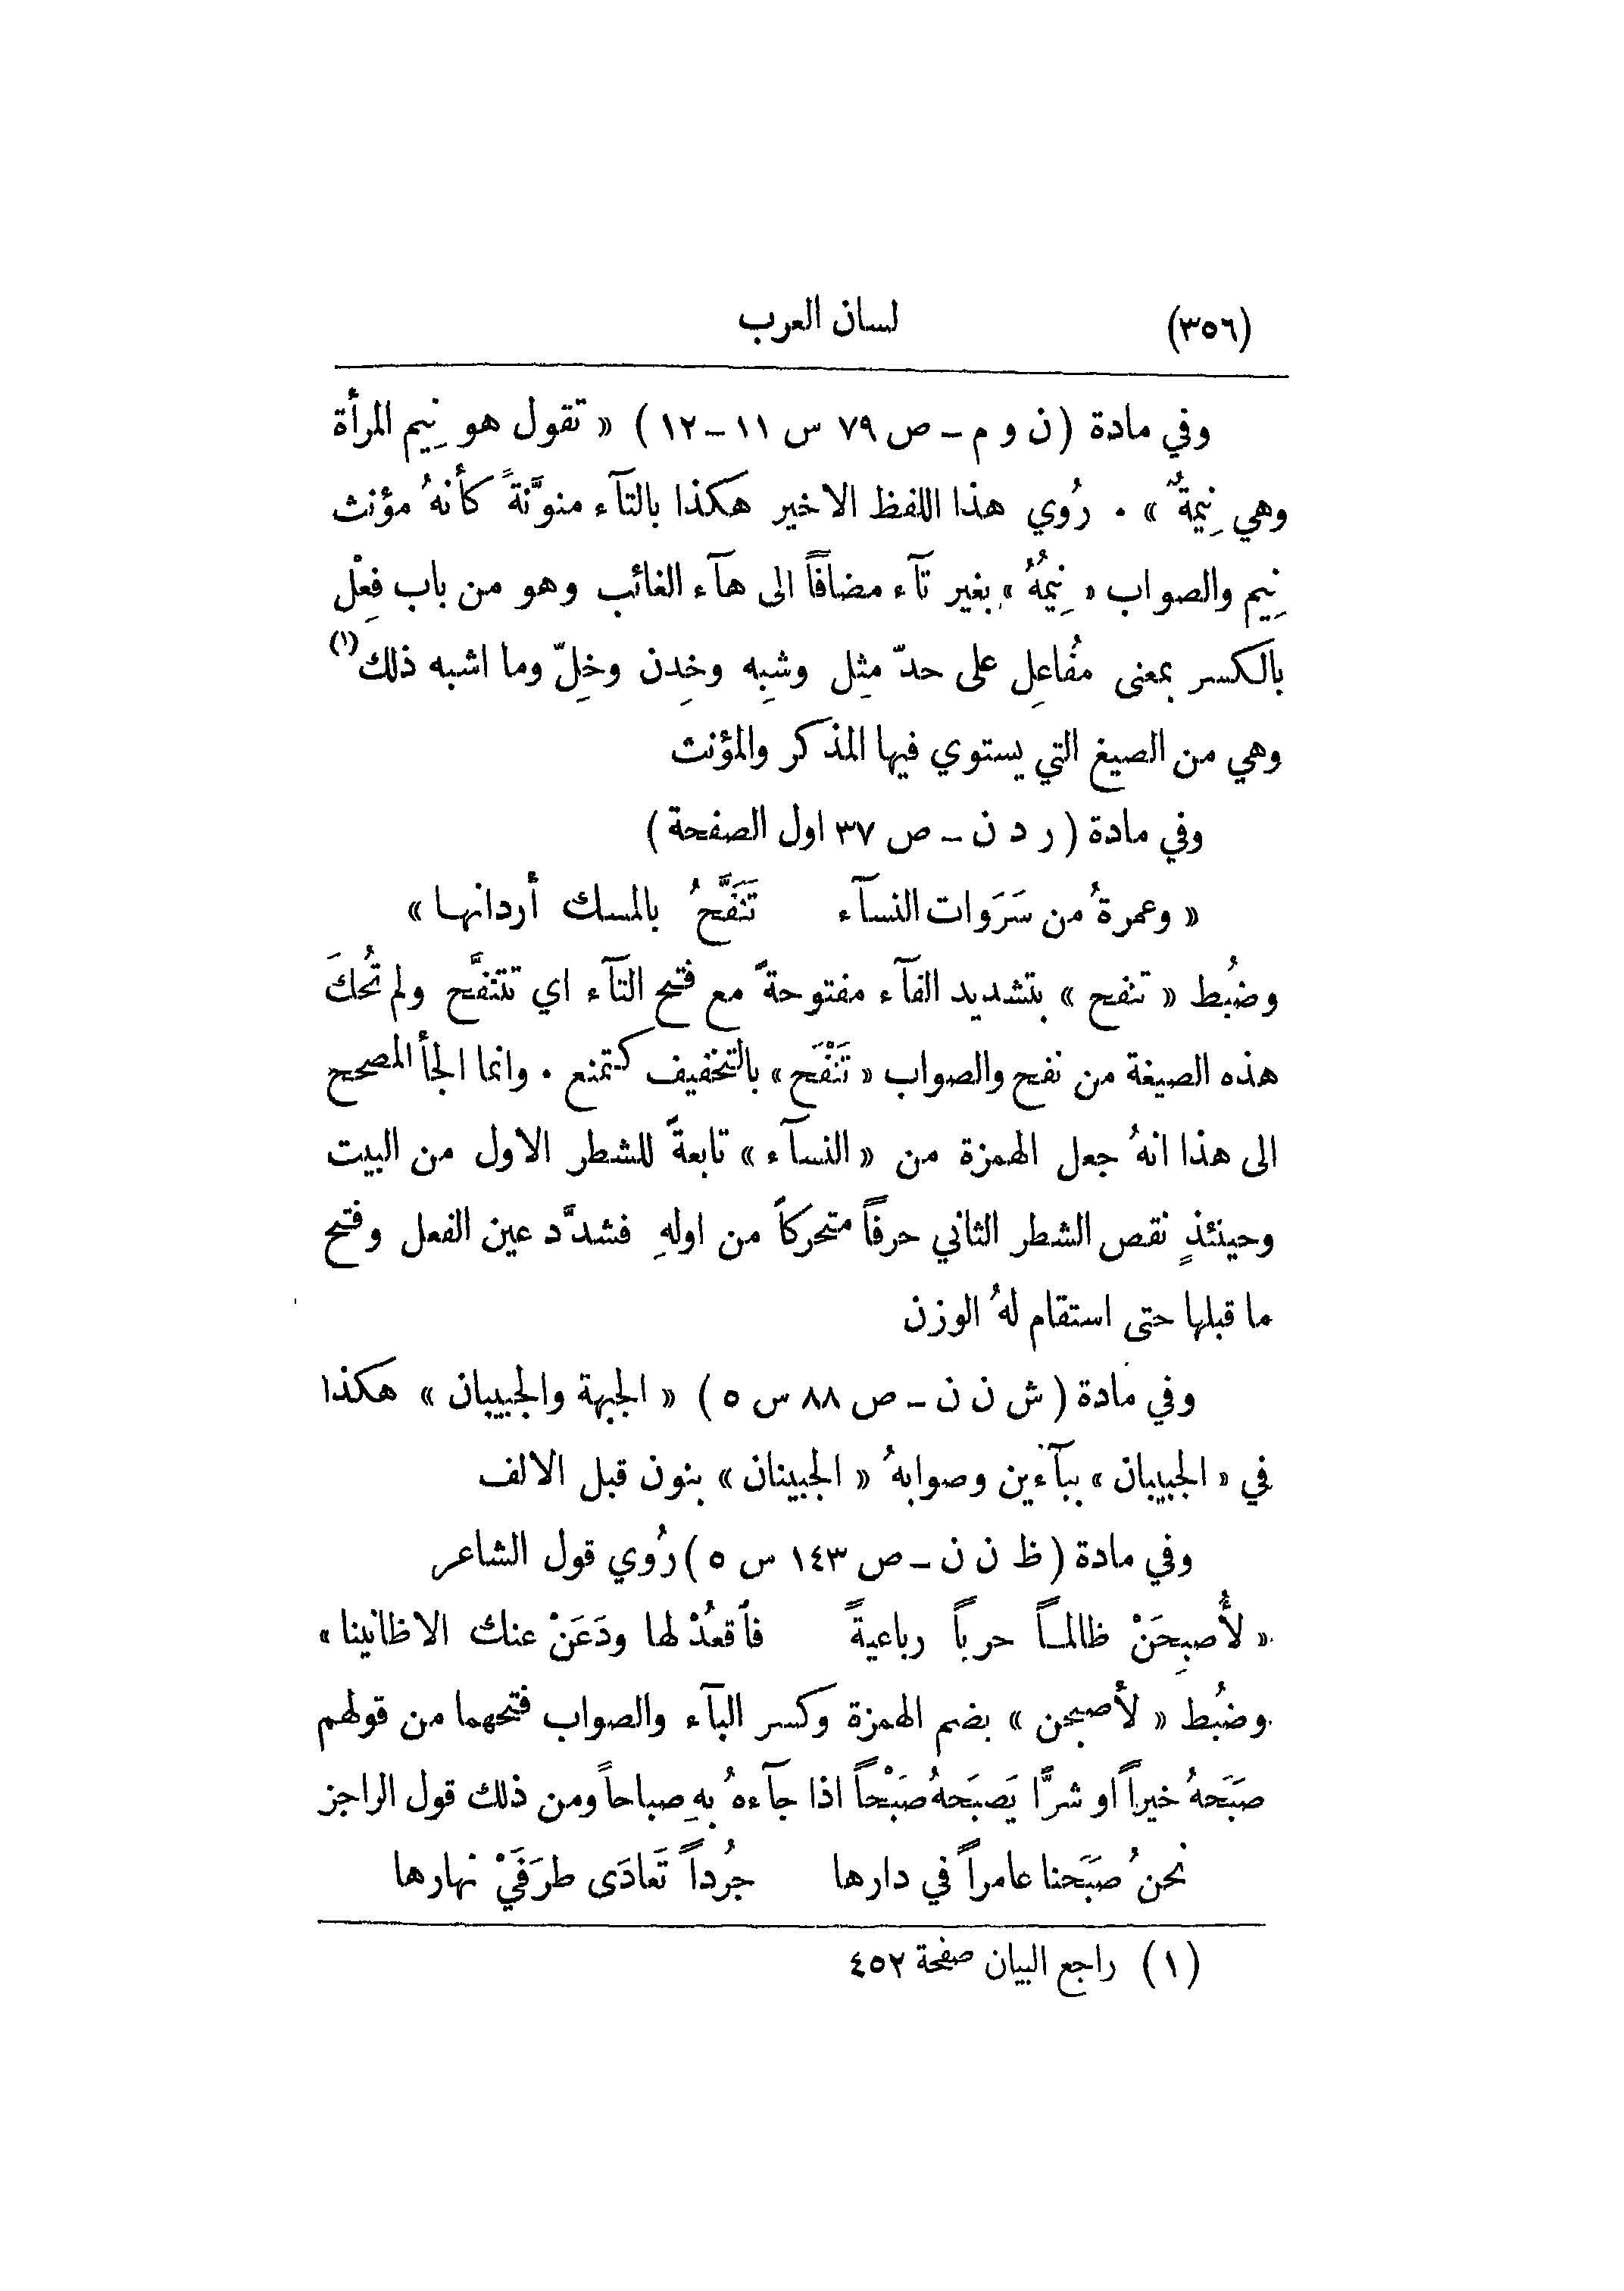 (٣٥٦) لسان العرب
وفي مادة (ن و م ـ ص ٧٩ س ١١ـ١٢) « تقول هو نِيم المرأة
وهي نِيمةٌ » . رُوي هذا اللفظ الاخير هكذا بالتآء منوَّنةً كأنهُ مؤنث
نِيم والصواب « نِيمُهُ » بغير تآء مضافاً الى هآء الغائب وهو من باب فِعْل
بالكسر بمعنى مُفاعِل على حدّ مثِل وشبِه وخِدن وخِلّ وما اشبه ذلك (١)
وهي من الصيغ التي يستوي فيها المذكر والمؤنث
وفي مادة (ر د ن ـ ص ٣٧ اول الصفحة)
« وعمرةُ من سَرَوات النسآء تَنَفَّحُ بالمسك أردانها »
وضُبط « تنفح » بتشديد الفآء مفتوحةً مع فتح التآء اي تتنفَّح ولم تُحكَ
هذه الصيغة من نفح والصواب « تَنْفَح » بالتخفيف كتمنع . وانما الجأ المصحح
الى هذا انهُ جعل الهمزة من « النسآء » تابعةً للشطر الاول من البيت
وحينئذٍ نقص الشطر الثاني حرفاً متحركاً من اولهِ فشدَّد عين الفعل وفتح
ما قبلها حتى استقام لهُ الوزن
وفي مادة (ش ن ن ـ ص ٨٨ س ٥) « الجبهة والجبيبان » هكذا
في « الجبيبان » ببآءين وصوابهُ « الجبينان » بنون قبل الالف
وفي مادة (ظ ن ن ـ ص ١٤٣ س ٥) رُوي قول الشاعر
« لأُصبِحَنْ ظالمـاً حرباً رباعيةً فاقعُدْ لها ودَعَنْ عنك الاظانينا »
وضُبط « لأصبحن » بضم الهمزة وكسر البآء والصواب فتحهما من قولهم
صَبَحَهُ خيراً او شرًّا يَصبَحهُ صَبْحاً اذا جآءهُ بهِ صباحاً ومن ذلك قول الراجز
نحنُ صَبَحنا عامراً في دارها جُرداً تَعادَى طرَفَيْ نهارها
(١) راجع البيان صفحة ٤٥٢